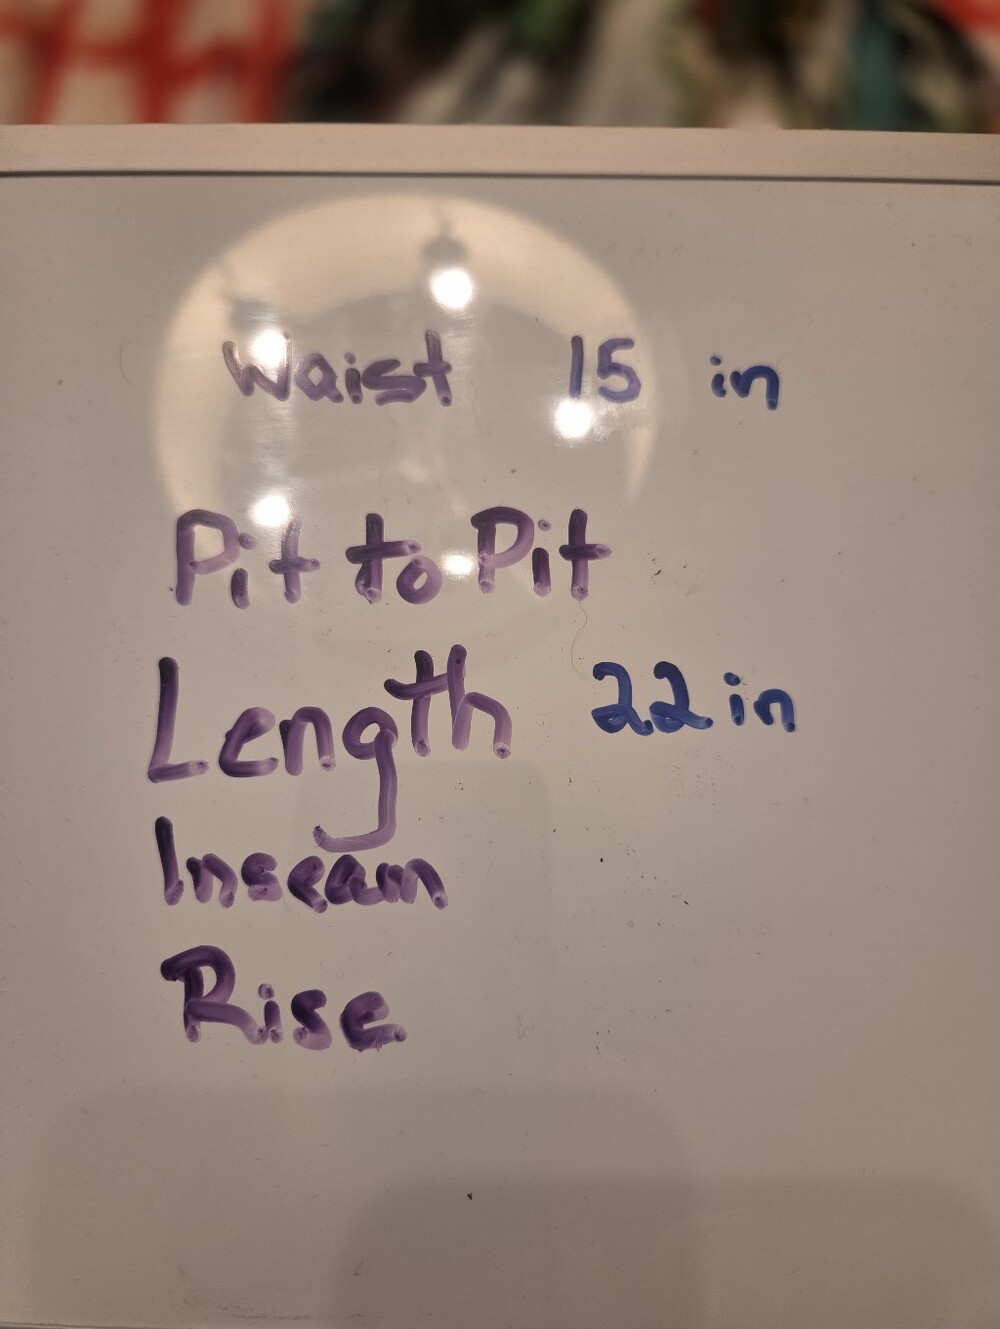 Waist 15 in
Pit to Pit
Length 22 in
Inseam
Rise